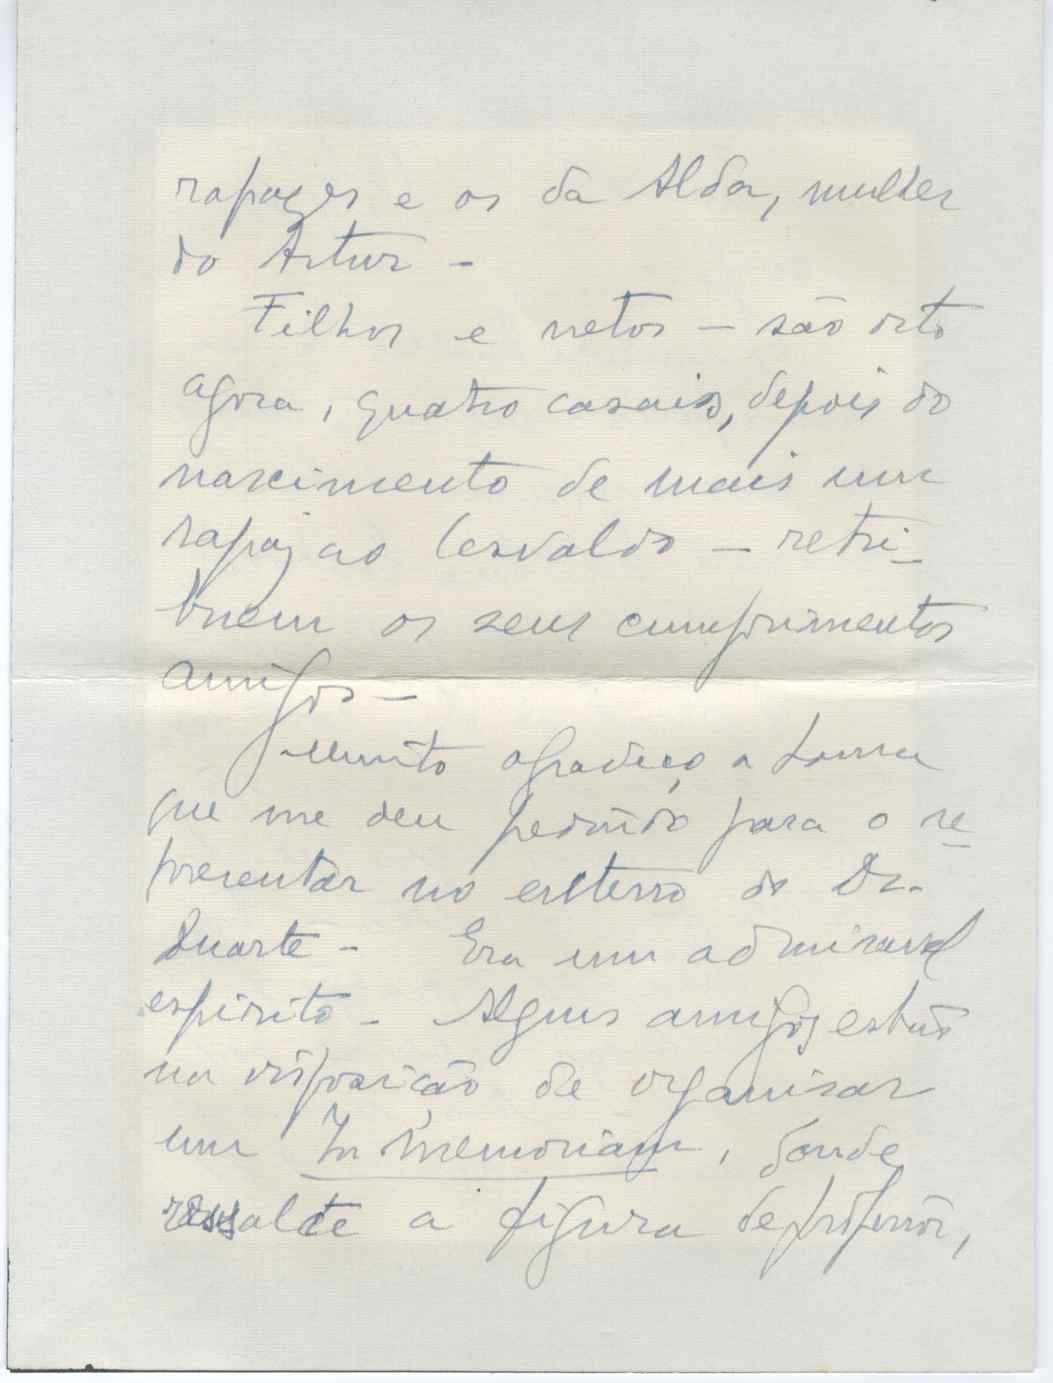 rapazes e os da Alda, mulher
do Artur -
Filhos e netos - são oito
agora, quatro casais, depois do
nascimento de mais um
rapaz ao - retri-
buem os seus cumprimentos
amigos -
Muito agradeço a honra
que me deu pedindo para o re
presentar no enterro do Dr.
Duarte - Era um admiravel
espirito - Alguns amigos estão
na disposição de organisar
um In memoriam, donde
ressalte a figura de professor,